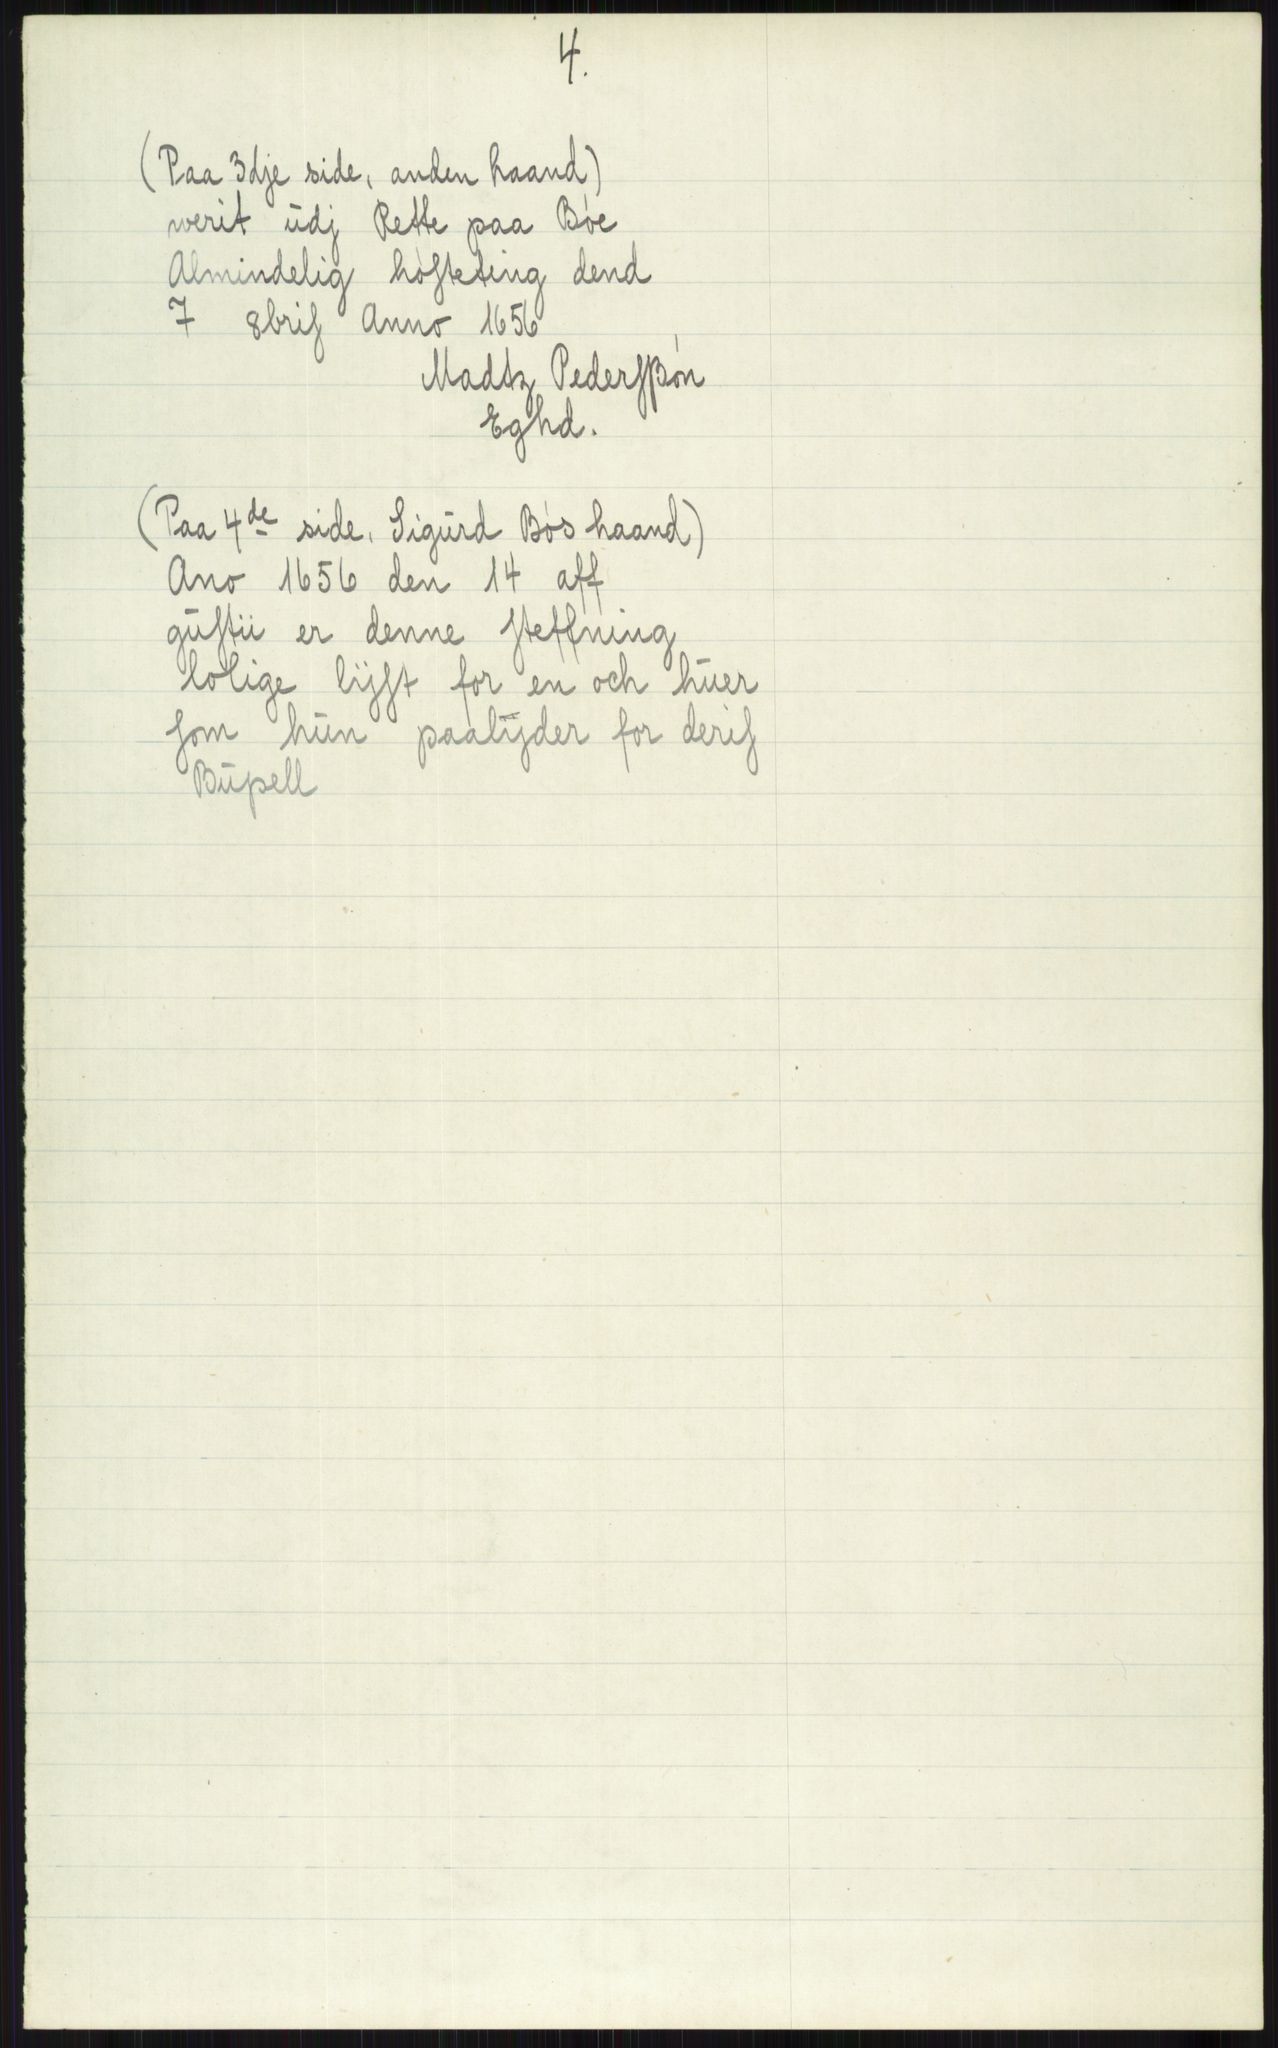 4.
(Paa 3dje side, anden haand)
werit ūdj Rette paa Bóe
Almindelig hósteting dend
7 8bris Anno 1656
Madtz Pedersßón
Eghd.
(Paa 4de side, Sigūrd Bós haand)
Ano 1656 den 14 aff
gūstii er denne steffning
lolige lijst for en och hūer
som hūn paalijder for deris
Būpell